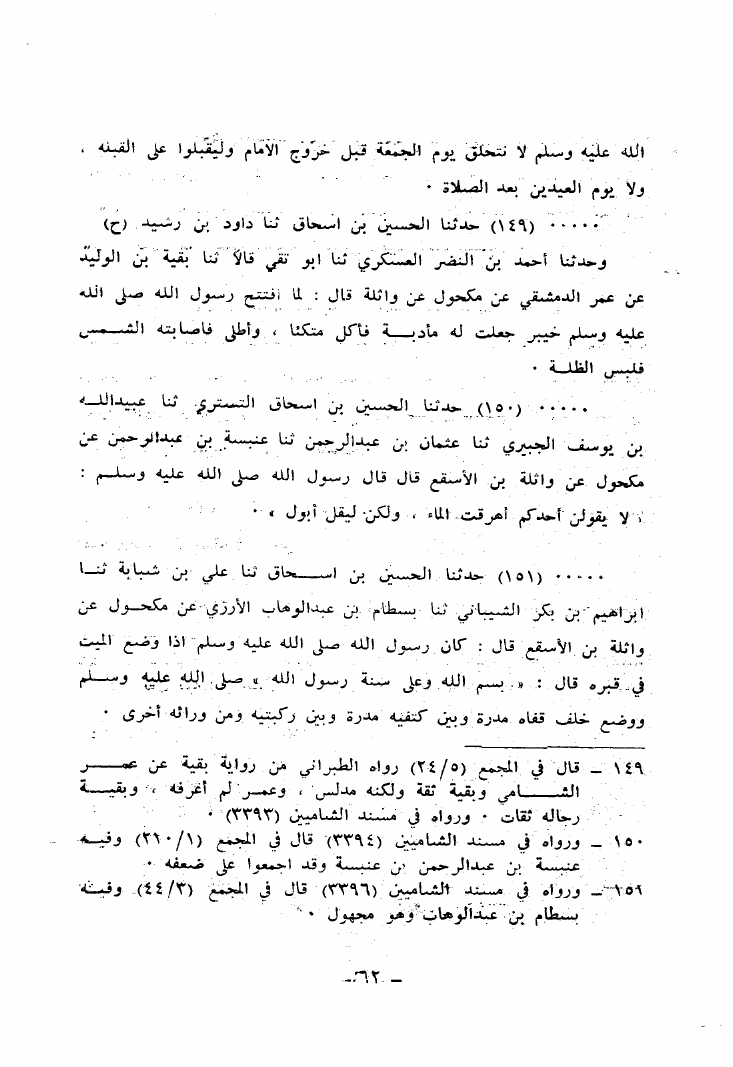 الله عليه وسلم لا نتحلق يوم الجمعة قبل خروج الامام وليقبلوا على القبلة ،
ولا يوم العيدين بعد الصلاة ٠
٠٠٠٠٠ (١٤٩) حدثنا الحسين بن اسحاق ثنا داود بن رشيد (ح)
وحدثنا أحمد بن النضر العسكري ثنا ابو تقي قالا ثنا بقية بن الوليد
عن عمر الدمشقي عن مكحول عن واثلة قال : لما افتتح رسول الله صلى الله
عليه وسلم خيبر جعلت له مأدبــة فأكل متكئا ، وأطلى فاصابته الشــمس
فلبس الظلــة ٠
٠٠٠٠٠ (١٥٠) حدثنا الحسين بن اسحاق التستري ثنا عبيدالله
بن يوسف الجبيري ثنا عثمان بن عبدالرحمن ثنا عنبسة بن عبدالرحمن عن
مكحول عن واثلة بن الأسقع قال قال رسول الله صلى الله عليه وسلم :
« لا يقولن أحدكم أهرقت الماء ، ولكن ليقل أبول » ٠
٠٠٠٠٠ (١٥١) حدثنا الحسين بن اســحاق ثنا علي بن شبابة ثنــا
ابراهيم بن بكر الشيباني ثنا بسطام بن عبدالوهاب الأرزي عن مكحــول عن
واثلة بن الأسقع قال : كان رسول الله صلى الله عليه وسلم اذا وضع الميت
في قبره قال : « بسم الله وعلى سنة رسول الله » صلى الله عليه وســلم
ووضع خلف قفاه مدرة وبين كتفيه مدرة وبين ركبتيه ومن ورائه أخرى ٠
١٤٩ ـ قال في المجمع (٢٤/٥) رواه الطبراني من رواية بقية عن عمــر
الشــامي وبقية ثقة ولكنه مدلس ، وعمر لم أعرفه ، وبقيــة
رجاله ثقات ٠ ورواه في مسند الشاميين (٣٣٩٣) ٠
١٥٠ ـ ورواه في مسند الشاميين (٣٣٩٤) قال في المجمع (٢١٠/١) وفيــه
عنبسة بن عبدالرحمن بن عنبســة وقد اجمعوا على ضعفه ٠
١٥١ ـ ورواه في مسند الشاميين (٣٣٩٦) قال في المجمع (٤٤/٣) وفيــه
بسطام بن عبدالوهاب وهو مجهول ٠
ـ ٦٢ ـ